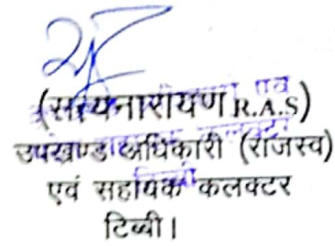 (सत्यनारायण R.A.S)
उपखण्ड अधिकारी (राजस्व)
एवं सहायक कलक्टर
टिब्बी।